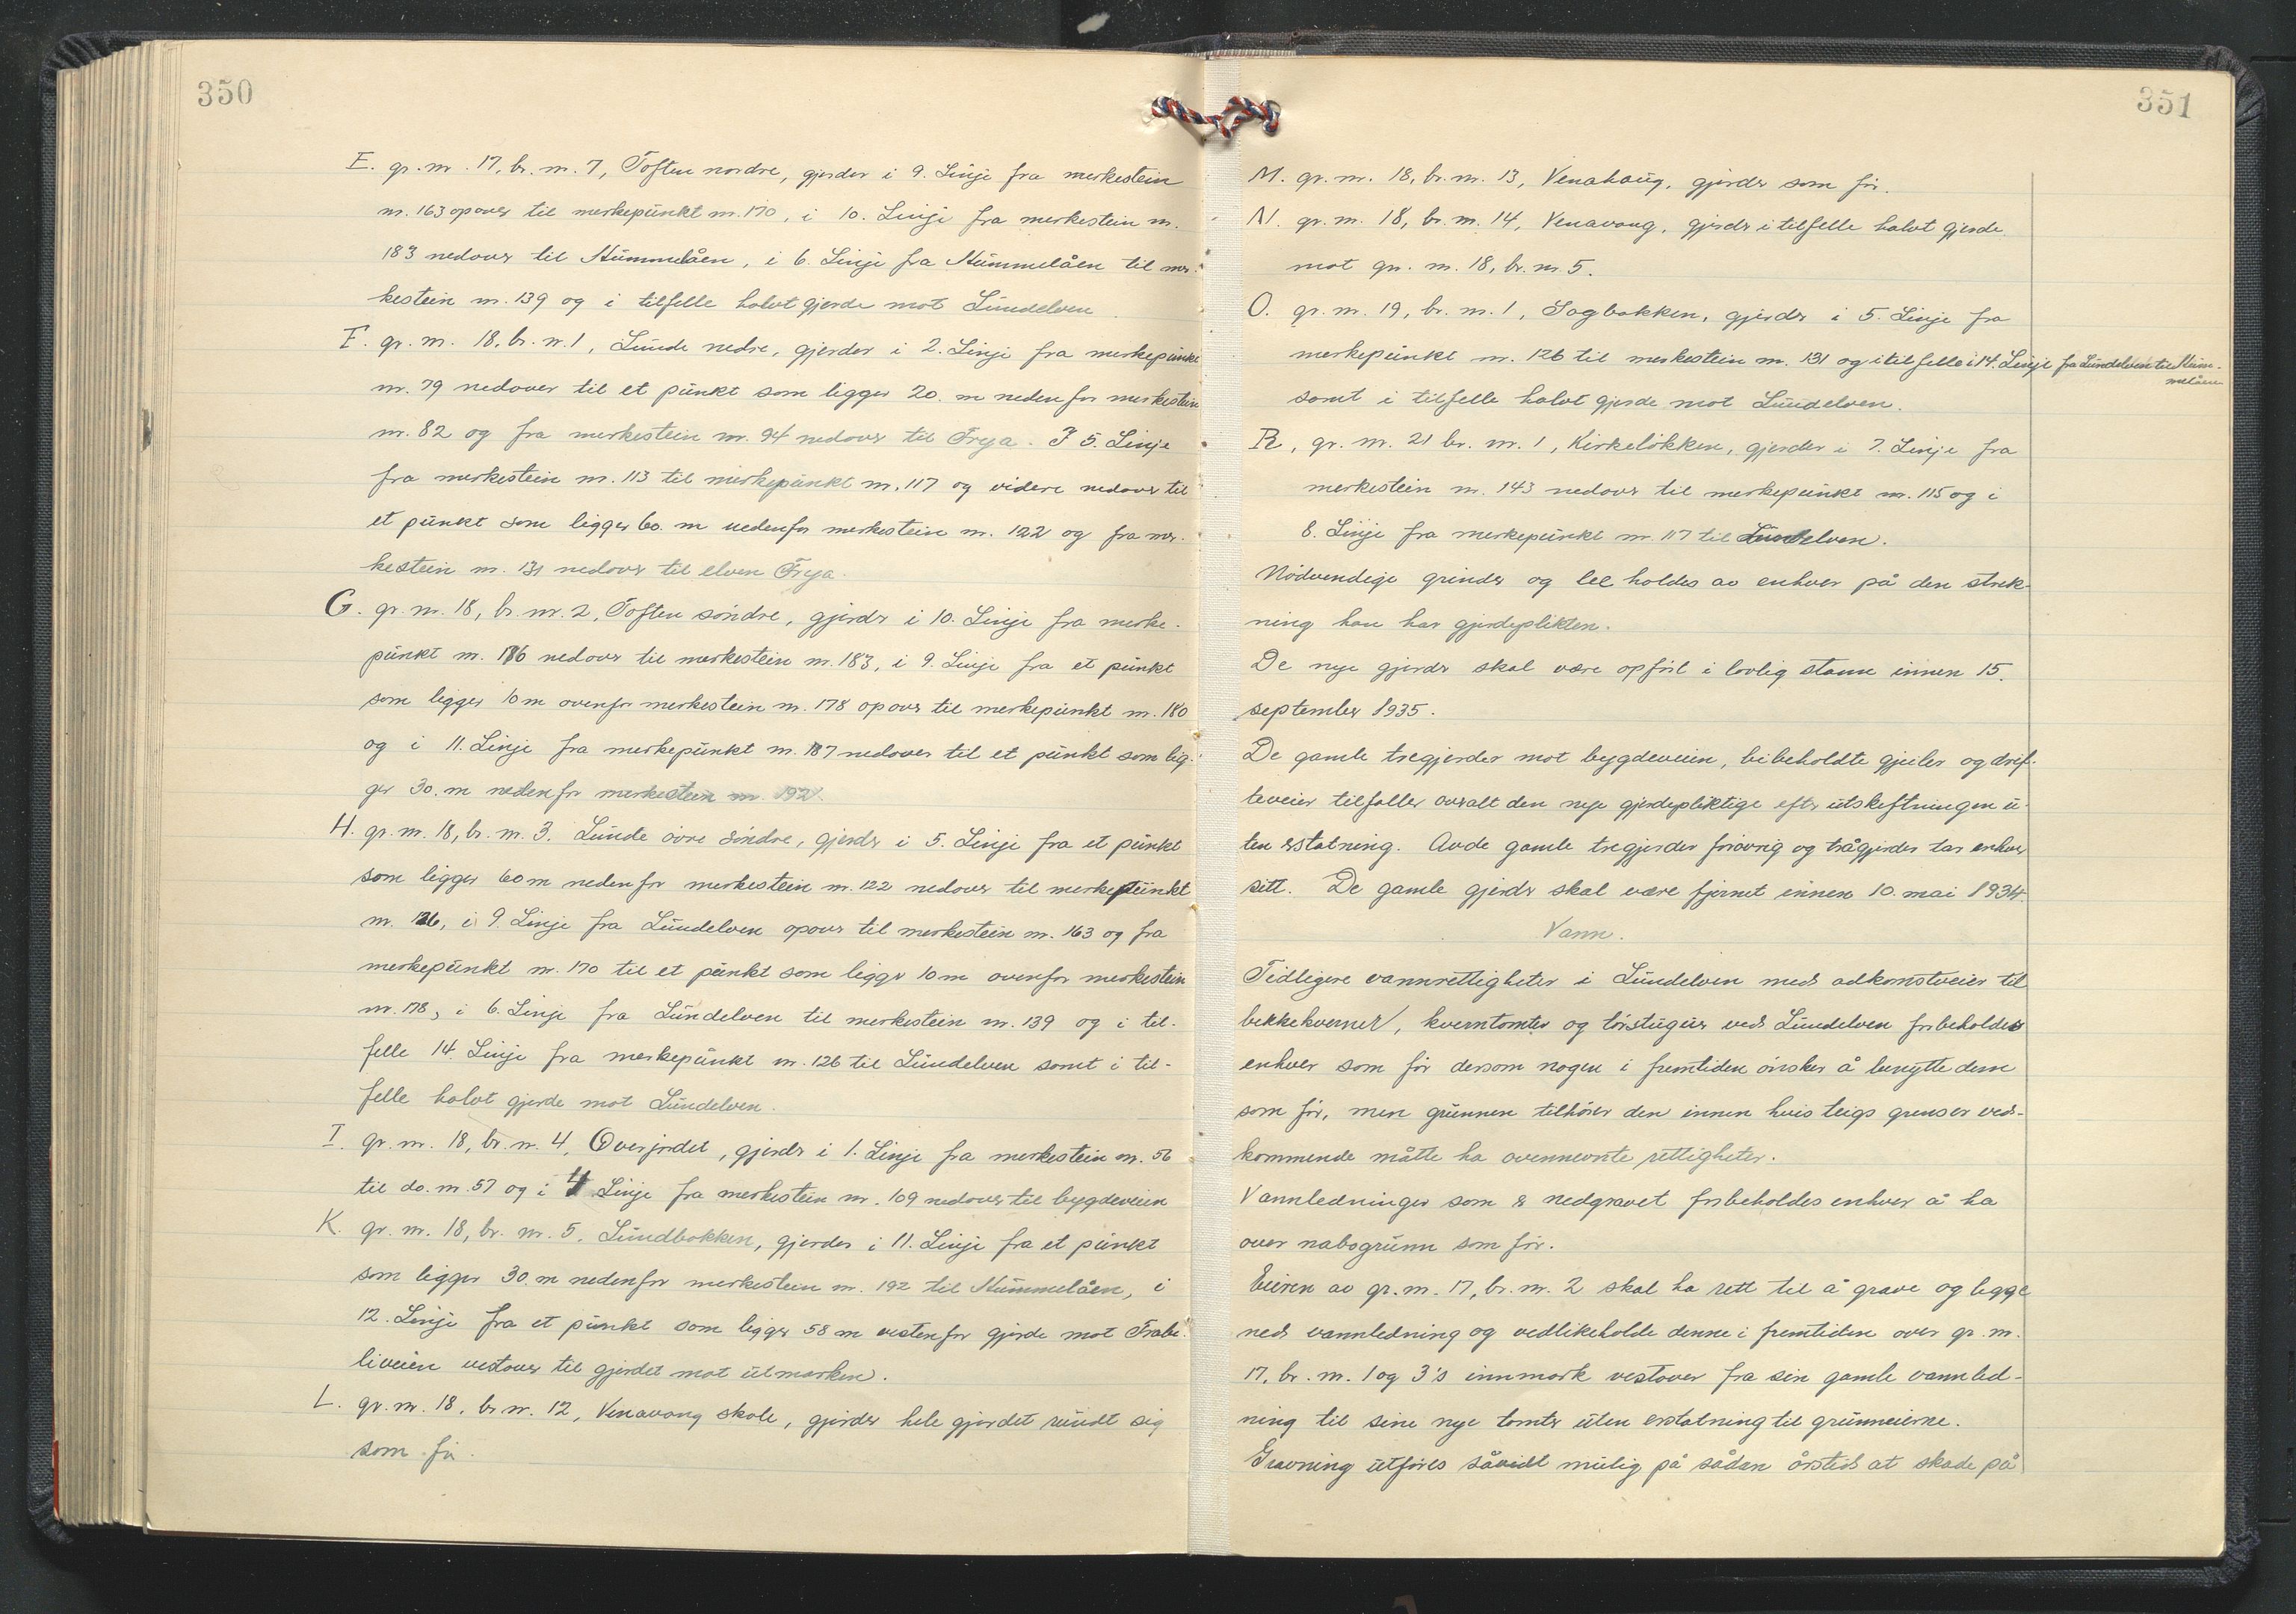 350
E. gr. nr. 17, br. nr. 7, Toften nordre, gjerder i 9. Linje fra merkestein
nr. 163 opover til merkepunkt nr. 170, i 10. Linje fra merkestein nr.
183 nedover til Stummelåen, i 6. Linje fra Stummelåen til mer-
kestein nr. 139 og i tilfelle halvt gjerde mot Lundelven.
F. gr. nr. 18, br. nr. 1, Lunde nedre, gjerder i 2. Linje fra merkepunkt
nr. 79 nedover til et punkt som ligger 20. m nedenfor merkestein
nr. 82 og fra merkestein nr. 94 nedover til Frya. I 5. Linje
fra merkestein nr. 113 til merkepunkt nr. 117 og videre nedover til
et punkt som ligger 60. m nedenfor merkestein nr. 122 og fra mer-
kestein nr. 131 nedover til elven Frya.
G. gr. nr. 18, br. nr. 2, Toften söndre, gjerder i 10. Linje fra merke-
punkt nr. 176 nedover til merkestein nr. 183, i 9. Linje fra et punkt
som ligger 10 m ovenfor merkestein nr. 178 opover til merkepunkt nr. 180
og i 11. Linje fra merkepunkt nr. 187 nedover til et punkt som lig-
ger 30. m nedenfor merkestein nr. 192.
H. gr. nr. 18, br. nr. 3. Lunde övre söndre, gjerder i 5. Linje fra et punkt
som ligger 60 m nedenfor merkestein nr. 122 nedover til merkepunkt
nr. 126, i 9. Linje fra Lundelven opover til merkestein nr. 163 og fra
merkepunkt nr. 170 til et punkt som ligger 10 m ovenfor merkestein
nr. 178, i 6. Linje fra Lundelven til merkestein nr. 139 og i til-
felle 14. Linje fra merkepunkt nr. 126 til Lundelven samt i til-
felle halvt gjerde mot Lundelven.
I. gr. nr. 18, br. nr. 4, Overjordet, gjerder i 1. Linje fra merkestein nr. 56
til do. nr. 57 og i 4 Linje fra merkestein nr. 109 nedover til bygdeveien
K. gr. nr. 18, br. nr. 5, Lundbakken, gjerder i 11. Linje fra et punkt
som ligger 30. m nedenfor merkestein nr. 192 til Stummelåen, i
12. Linje fra et punkt som ligger 58 m vestenfor gjerde mot Trabe-
liveien vestover til gjerdet mot utmarken.
L. gr. nr. 18, br. nr. 12, Venavang skole, gjerder hele gjerdet rundt sig
som för.
351
M. gr. nr. 18, br. nr. 13, Venahaug, gjerder som för.
N. gr. nr. 18, br. nr. 14, Venavang, gjerder i tilfelle halvt gjerde
mot gr. nr. 18, br. nr. 5.
O. gr. nr. 19, br. nr. 1, Sagbakken, gjerder i 5. Linje fra
merkepunkt nr. 126 til merkestein nr. 131 og i tilfelle i 14. Linje fra Lundelven til Stum-
melåen
samt i tilfelle halvt gjerde mot Lundelven.
R, gr. nr. 21 br. nr. 1, Kirkelökken, gjerder i 7. Linje fra
merkestein nr. 143 nedover til merkepunkt nr. 115 og i
8. Linje fra merkepunkt nr. 117 til Lundelven.
Nödvendige grinder og lee holdes av enhver på den strek-
ning han har gjerdeplikten.
De nye gjerder skal være opfört i lovlig stann innen 15.
september 1935.
De gamle tregjerder mot bygdeveien, bibeholdte gjeiler og drif-
teveier tilfaller overalt den nye gjerdepliktige efter utskiftningen u-
ten erstatning. Av de gamle tregjerder forövrig og trågjerder tar enhver
sitt. De gamle gjerder skal være fjernet innen 10. mai 1934.
Vann.
Tidligere vannrettigheter i Lundelven med adkomstveier til
bekkekverner, kverntomter og törstuguer ved Lundelven forbeholdes
enhver som för dersom nogen i fremtiden önsker å benytte dem
som för, men grunnen tilhörer den innen hvis teigs grenser ved-
kommende måtte ha ovennevnte rettigheter.
Vannledninger som er nedgravet forbeholdes enhver å ha
over nabogrunn som för.
Eieren av gr. nr. 17, br. nr. 2 skal ha rett til å grave og legge
ned vannledning og vedlikeholde denne i fremtiden over gr. nr.
17, br. nr. 1 og 3's innmark vestover fra sin gamle vannled-
ning til sine nye tomter uten erstatning til grunneierne.
Gravning utföres såvidt mulig på sådan årstid at skade på